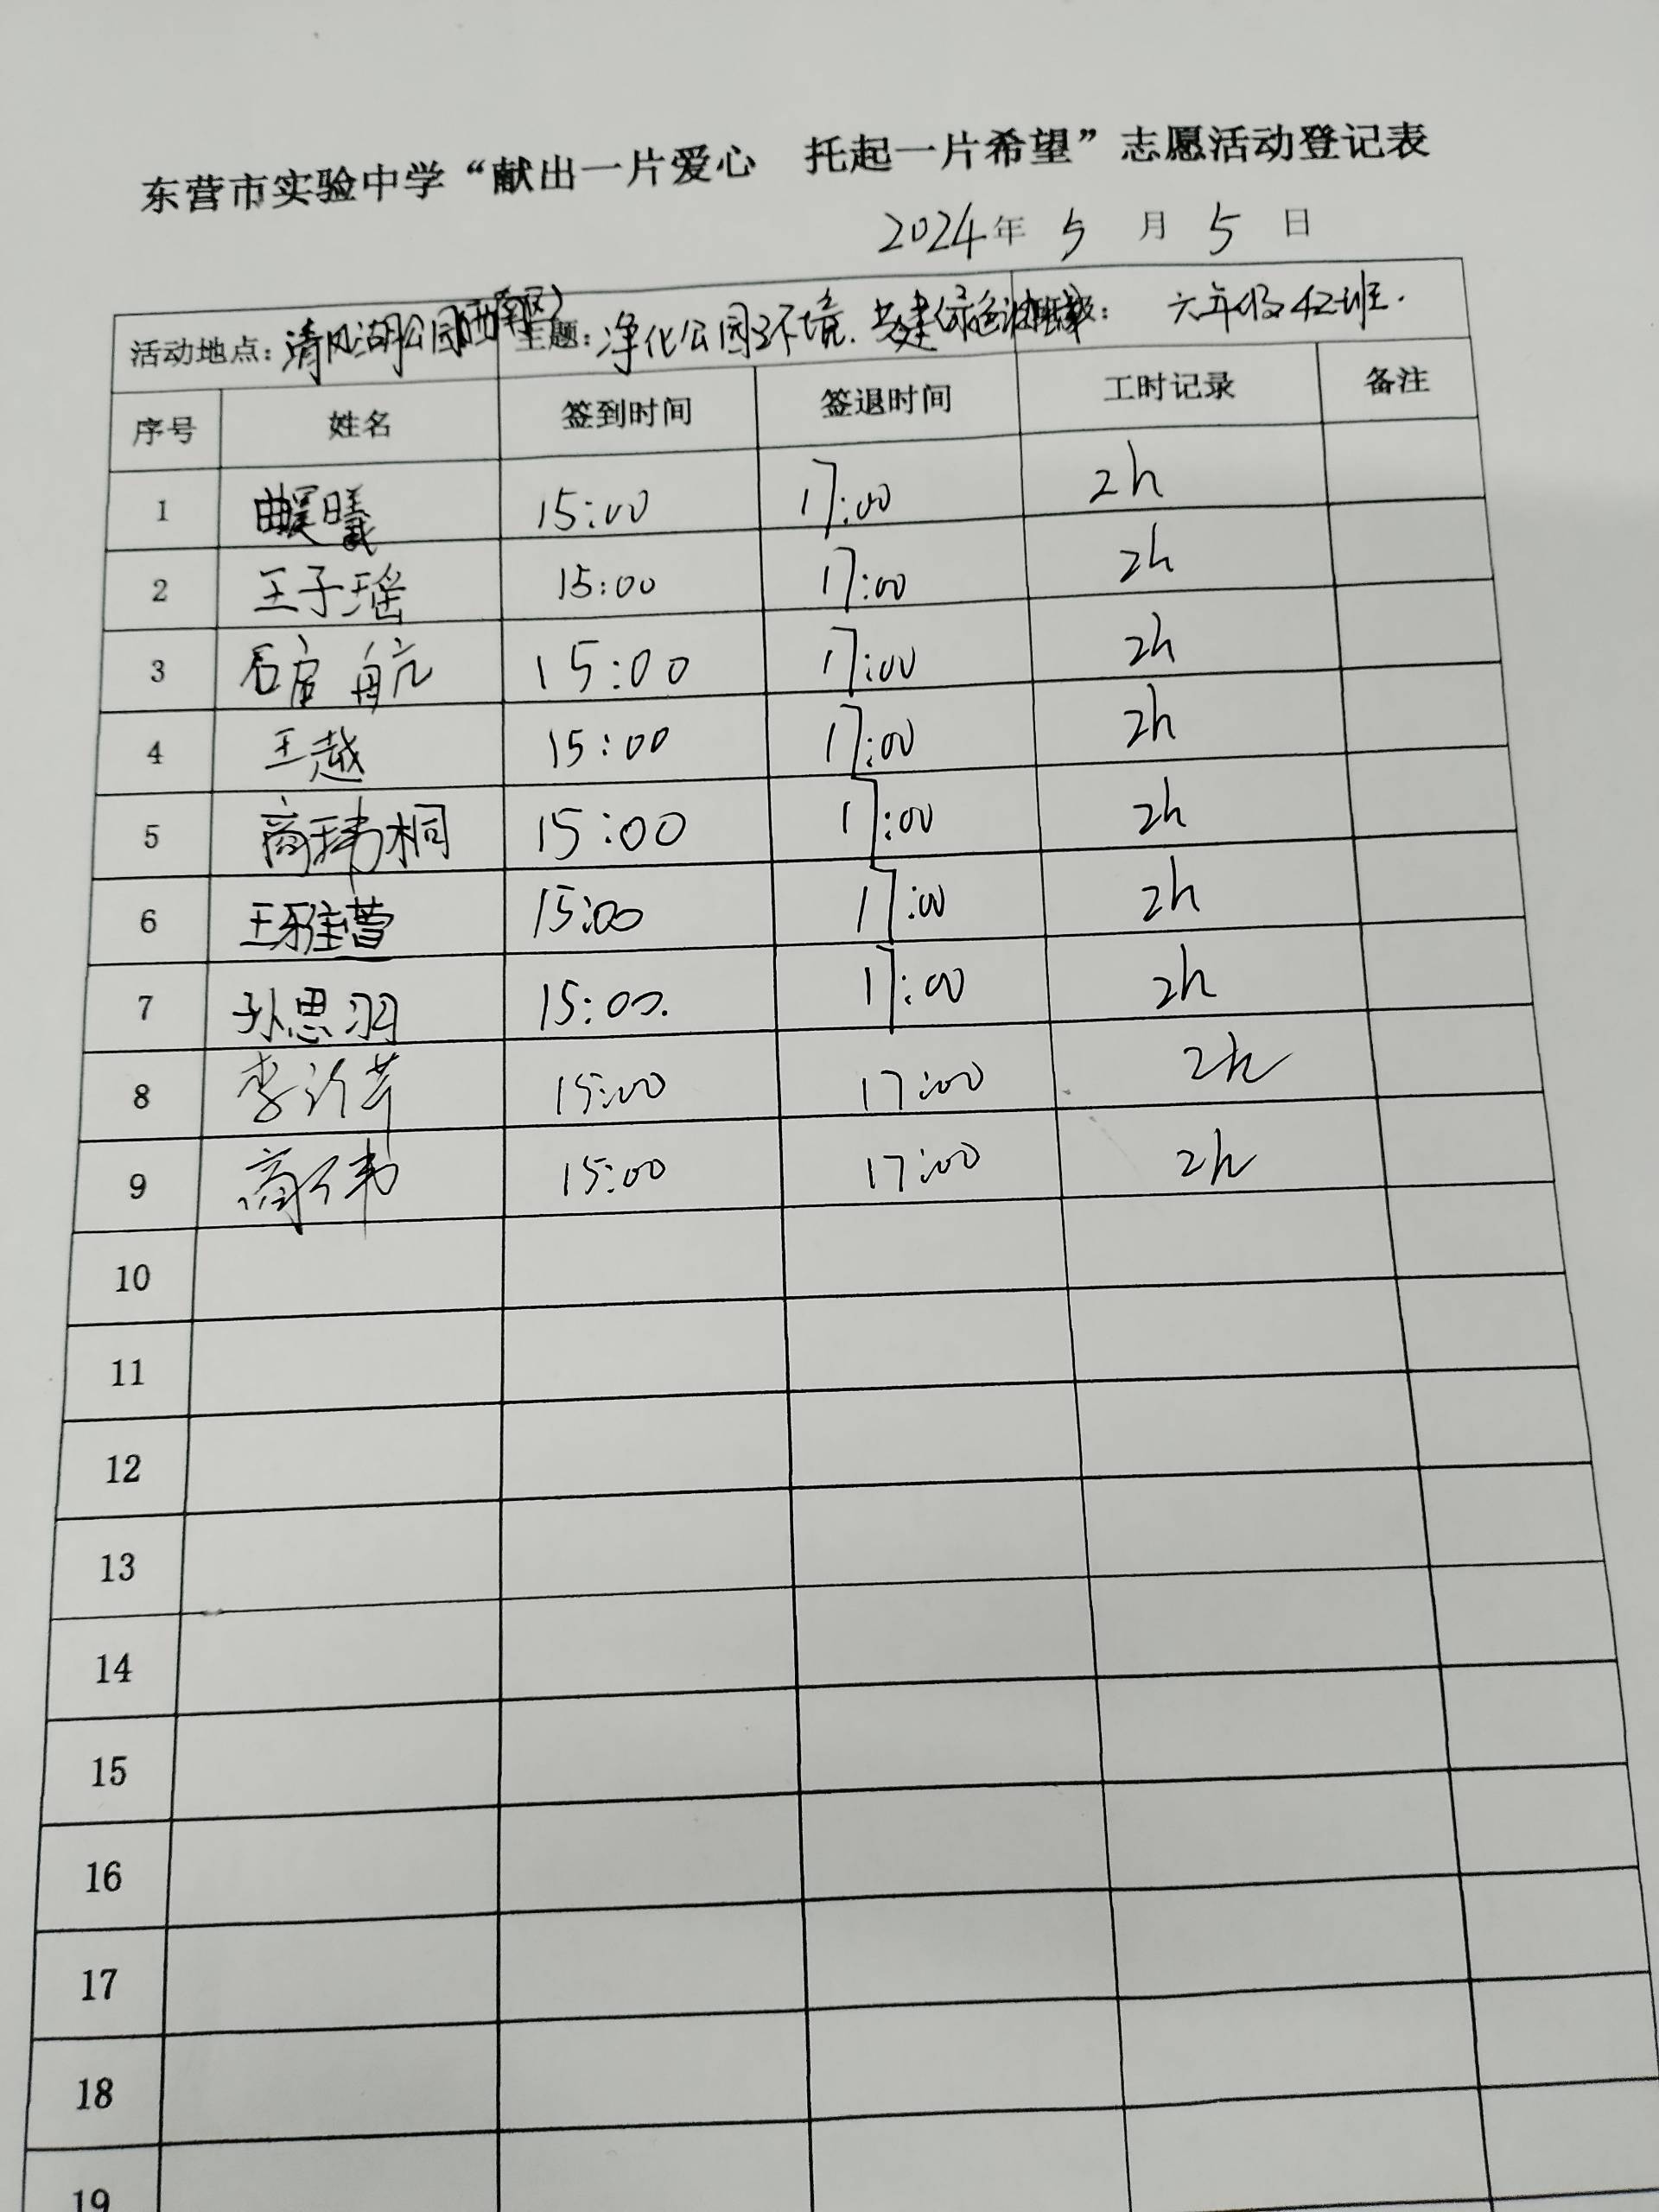 东营市实验中学“献出一片爱心 托起一片希望”志愿活动登记表
2024年 5 月 5 日
活动地点：清风湖公园(西南区) 主题：净化公园环境.共建绿色 班级： 六年级42班.
序号 姓名 签到时间 签退时间 工时记录 备注
1 曲暖曦 15:00 17:00 2h
2 王子瑶 15:00 17:00 2h
3 石启航 15:00 17:00 2h
4 王越 15:00 17:00 2h
5 商玮桐 15:00 17:00 2h
6 王雅萱 15:00 17:00 2h
7 孙思羽 15:00. 17:00 2h
8 李沂芹 15:00 17:00 2h
9 商伟 15:00 17:00 2h
10
11
12
13
14
15
16
17
18
19